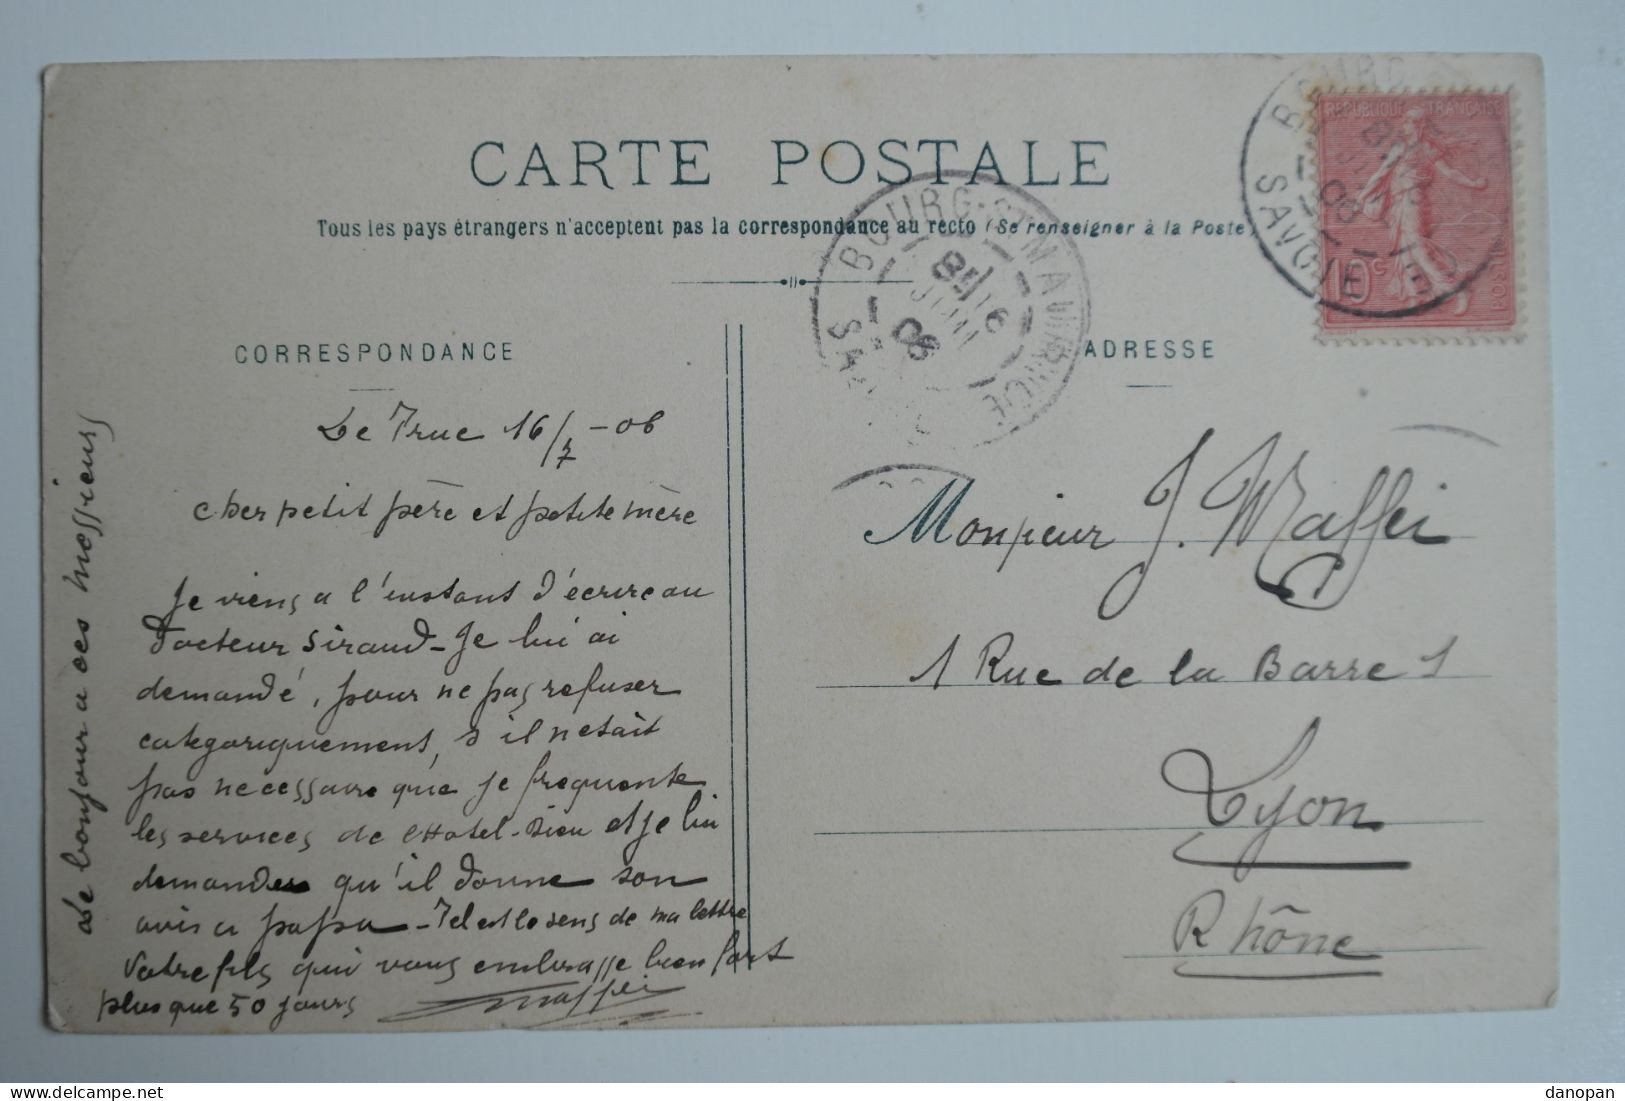 CARTE POSTALE
Tous les pays étrangers n'acceptent pas la correspondance au recto (Se renseigner à la Poste)
CORRESPONDANCE
Le Truc 16/7-06
cher petit père et petite mère
Je viens a l'instant d'écrire au
docteur Siraud - Je lui ai
demandé, pour ne pas refuser
categoriquement, s'il n'etait
pas necessaire que je frequente
les services de l'Hotel-Dieu et je lui
demande qu'il donne son
avis a papa - Tel est le sens de ma lettre
Votre fils qui vous embrasse bien fort
plus que 50 jours Maffei
Le bonjour a ces messieurs
ADRESSE
Monsieur J. Maffei
1 Rue de la Barre 1
Lyon
Rhône
REPUBLIQUE FRANÇAISE
10c
POSTES
BOURG-ST-MAURICE
SAVOIE
16
06
BOURG
SAVOIE
06
delcampe.net
danopan